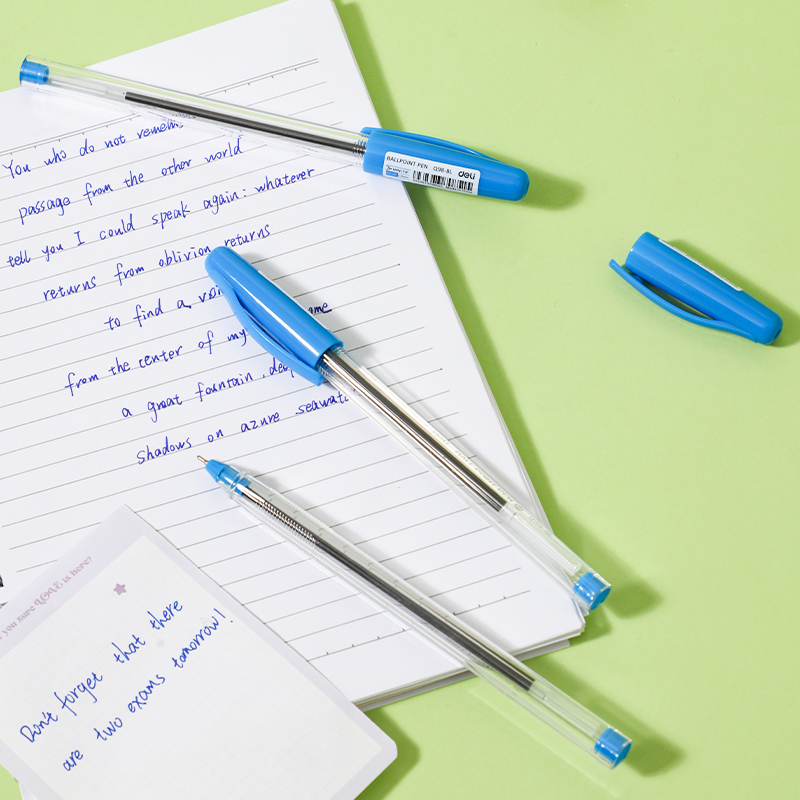 You who do not remem
passage from the other world
tell you I could speak again: whatever
returns from oblivion returns
to find a
from the center of my
a great fountain, deep
shadows on azure seawat
BALLPOINT PEN Q96-BL deli
you sure is here?
Don't forget that there
are two exams tomorrow!